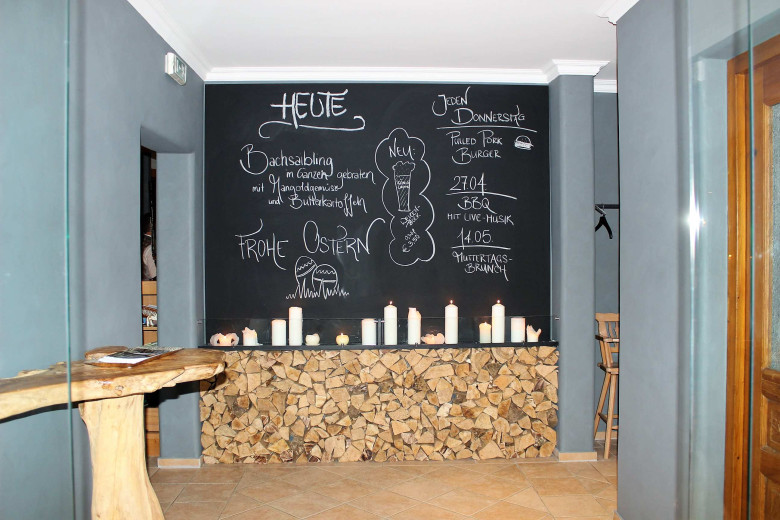 HEUTE
Bachsaibling
im Ganzen gebraten
mit Mangoldgemüse
und Butterkartoffeln
FROHE OSTERN
NEU:
0,5L
€ 3,90
JEDEN
DONNERSTAG
PULLED PORK
BURGER
27.04
BBQ
MIT LIVE-MUSIK
14.05.
MUTTERTAGS-
BRUNCH